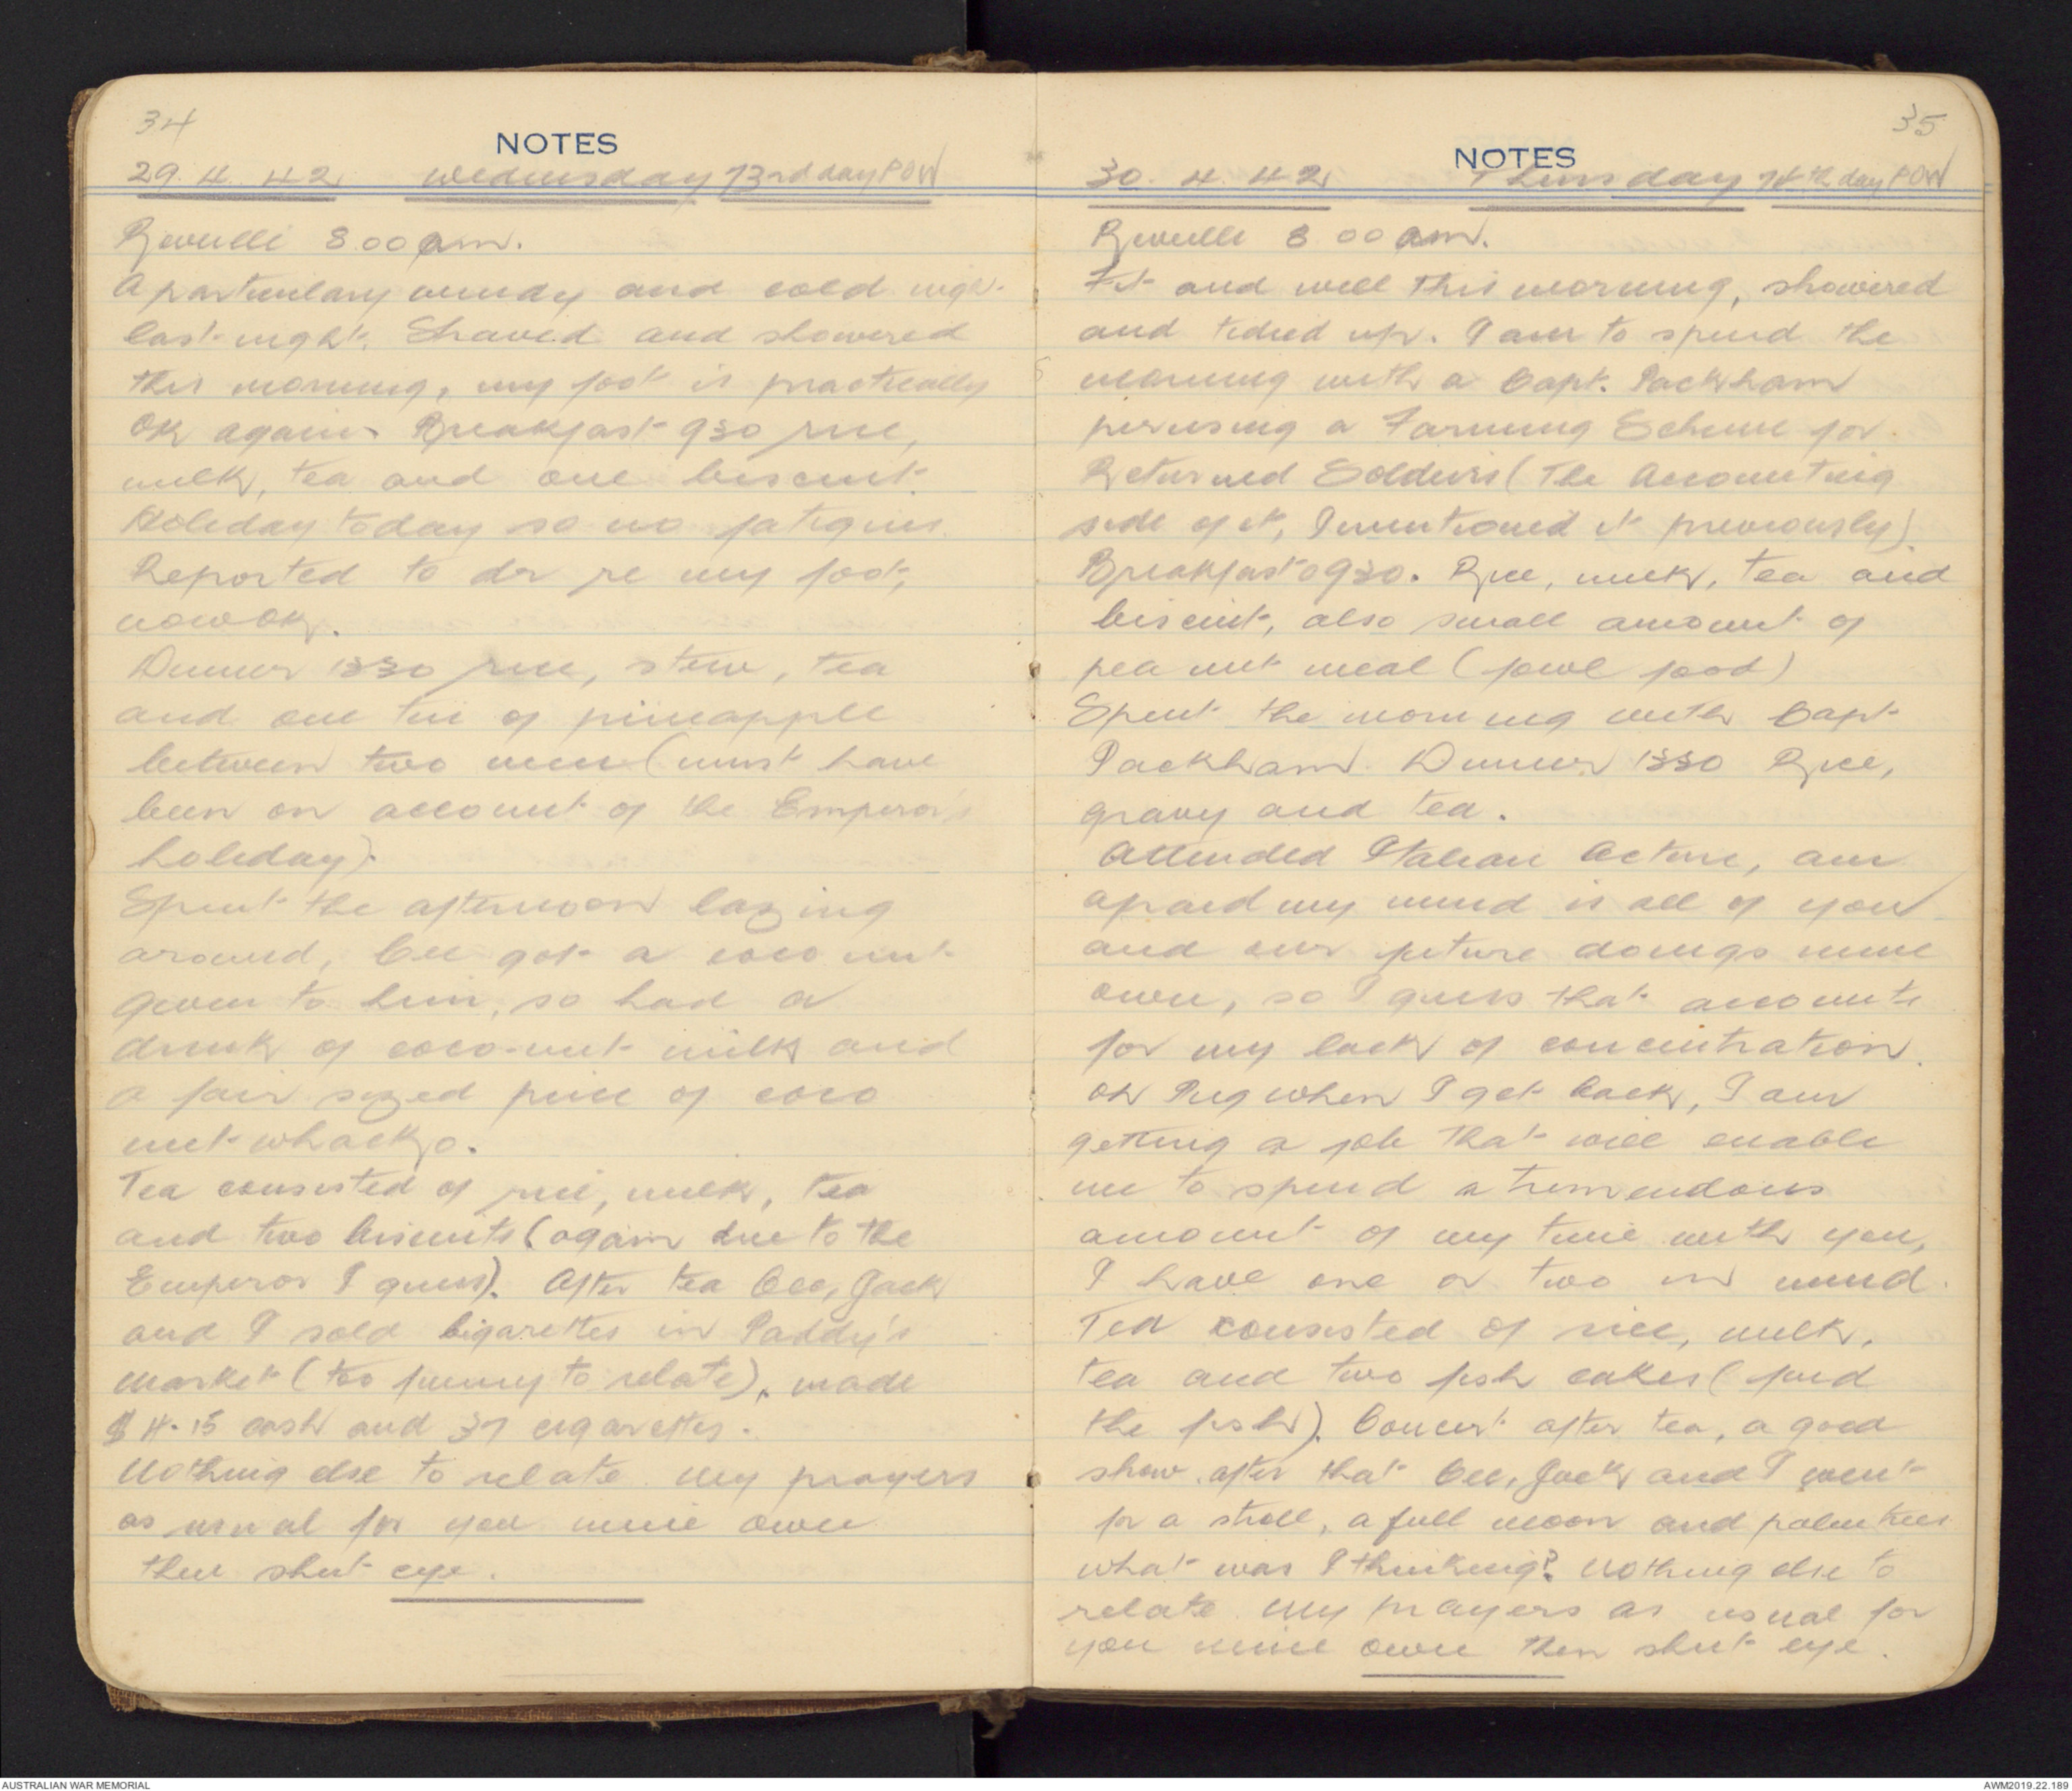 34
NOTES
29.4.42 Wednesday 73rd day POW
Reveille 8.00 am.
A particulary windy and cold nigh
last night. Shaved and showered
this morning, my foot is practically
OK again. Breakfast 930 rice,
milk, tea and one biscuit.
Holiday today so no fatigues
Reported to dr re my foot,
now OK.
Dinner 1330 rice, stew, tea
and one tin of pineapple
between two men (must have
been on account of the Emperor's
holiday).
Spent the afternoon lazing
around, Cec got a coco nut
given to him, so had a
drink of coco-nut milk and
a fair sized piece of coco
nut whacko.
Tea consisted of rice, milk, tea
and two biscuits (again due to the
Emperor I guess). After tea Cec, Jack
and I sold Cigarettes in Paddy's
Market (too funny to relate), made
$4.15 cash and 37 cigarettes.
Nothing else to relate. My prayers
as usual for you mine own
then shut eye.
35
NOTES
30.4.42 Thursday 74th day POW
Reveille 8 00 am.
Fit and well this morning, showered
and tidied up. I am to spend the
morning with a Capt. Packham
perusing a Farming Scheme for
Returned Soldiers (The Accounting
side of it, I mentioned it previously).
Breakfast 0930. Rice, milk, tea and
biscuit, also small amount of
pea nut meal (fowl food)
Spent the morning with Capt
Packham. Dinner 1330 Rice,
gravy and tea.
Attended Italian lecture, am
afraid my mind is all of you
and our future doings mine
own, so I guess that accounts
for my lack of concentration.
Oh Peg when I get back, I am
getting a job that will enable
me to spend a tremendous
amount of my time with you,
I have one or two in mind.
Tea consisted of rice, milk,
tea and two fish cakes (find
the fish). Concert after tea, a good
show. after that Cec, Jack and I went
for a stroll, a full moon and palm trees
what was I thinking? Nothing else to
relate. My prayers as usual for
you mine own then shut eye.
AUSTRALIAN WAR MEMORIAL
AWM2019.22.189